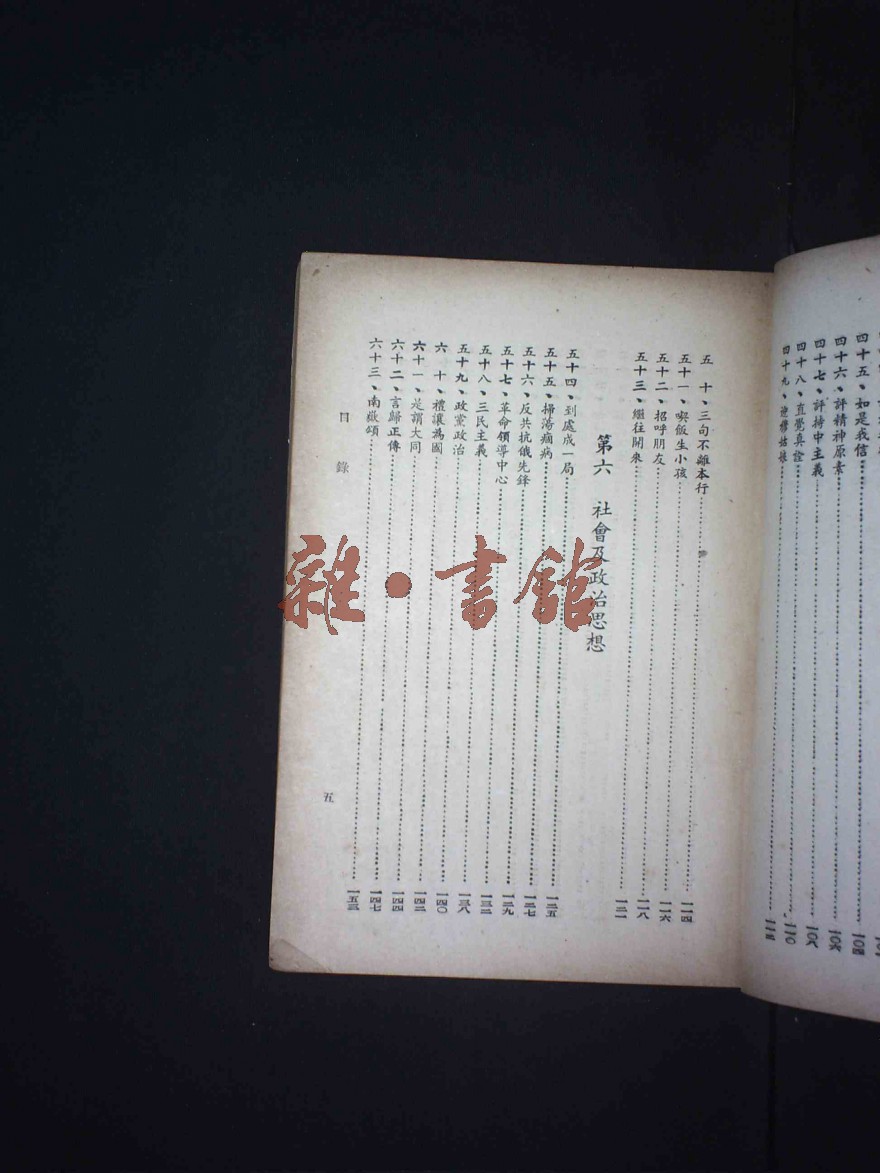 四十五、如是我信……一〇四
四十六、評精神原素……一〇六
四十七、評持中主義……一〇八
四十八、直覺真詮……一一〇
四十九、姑娘……一一三
五　十、三句不離本行……一一四
五十一、喫飯生小孩……一一六
五十二、招呼朋友……一一八
五十三、繼往開來……一二一
第六　社會及政治思想
五十四、到處成一局……一二五
五十五、掃蕩痼病……一二七
五十六、反共抗俄先鋒……一二九
五十七、革命領導中心……一三二
五十八、三民主義……一三八
五十九、政黨政治……一四〇
六　十、禮讓為國……一四二
六十一、是謂大同……一四四
六十二、言歸正傳……一四七
六十三、南嶽頌……一五三
目錄　五
雜·書館